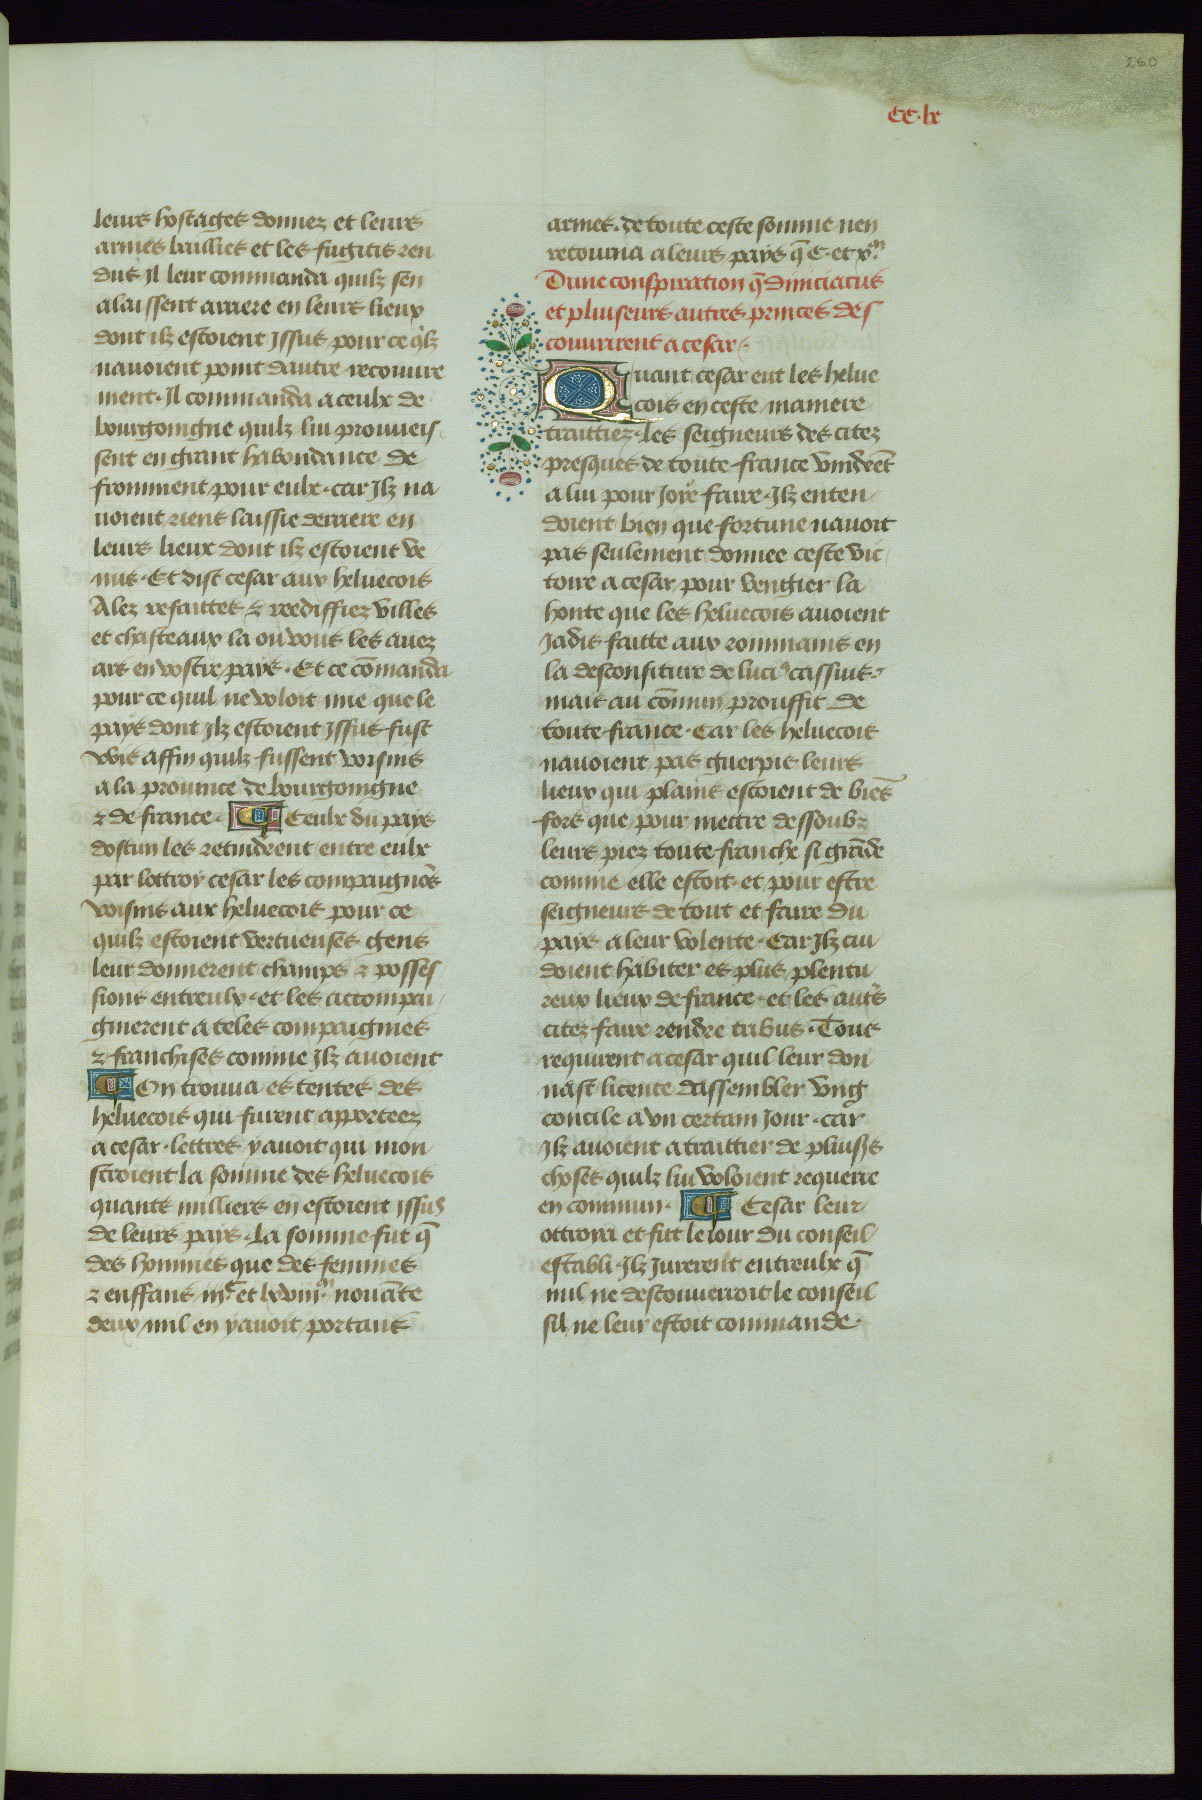 260
CC.lx
leurs hostages donnez et leurs
armes baillies et les fugitis ren
dus Il leur commanda quilz sen
alaissent arriere en leurs lieux
dont ilz estoient Issus pour ce qlz
nauoient point dautre recouure
ment. Il commanda a ceulx de
bourgoingne quilz lui prouueis
sent en grant habondance de
fromment pour eulx. car Ilz na
uoient riens laissie derriere en
leurs lieux dont ilz estoient ve
nus. Et dist cesar aux heluecois
Alez refaittes & reediffiez villes
et chasteaux la ou vous les auez
ars en vostre pays. Et ce cōmanda
pour ce quil ne voloit mie que le
pays dont Ilz estoient Issus fust
wis affin quilz fussent voisins
a la prouince de bourgoingne
& de france. Ceulx du pays
dostun les retindrent entre eulx
par lottroy cesar les compaignōs
voisins aux heluecois pour ce
quilz estoient vertueuses gens
leur donnerent champs & posses
sions entreulx. et les accompai
gnierent a teles compaignies
& franchises comme Ilz auoient
On trouua es tentes des
heluecois qui furent apportees
a cesar. lettres y auoit qui mon
stroient la somme des heluecois
quans milliers en estoient issus
de leurs pays. La somme fut q̄
des hommes que des femmes
& enffans iijᶜ et lxviijᵐ nouāte
deux mil en y auoit portans
armes. de toute ceste somme nen
retourna a leurs pays q̄ C. et xᵐ
Dune conspiration q̄ dimciacus
et pluiseurs autres princes des
couurirent a cesar.
Quant cesar eut les helue
cois en ceste maniere
traittiez. les seigneurs des citez
presques de toute france vindrēt
a lui pour Joye faire. Ilz enten
doient bien que fortune nauoit
pas seulement donnee ceste vic
toire a cesar pour vengier la
honte que les heluecois auoient
Jadis faitte aux rommains en
la desconfiture de luciꝰ cassius.
mais au cōmun prouffit de
toute france. Car les heluecois
nauoient pas guerpis leurs
lieux qui plains estoient de biēs
fors que pour mettre dessoubz
leurs piez toute franche si grāde
comme elle estoit. et pour estre
seigneurs de tout et faire du
pays a leur volente. Car Ilz cui
doient habiter es plus plentu
reux lieux de france. et les autˢs
citez faire rendre tribus. Tous
requirent a cesar quil leur don
nast licence dassembler vng
concile a vn certain Jour. car
Ilz auoient a traittier de pluisˢs
choses quilz lui voloient requerre
en commun. Cesar leur
ottroya et fitt le iour du conseil
establi. Ilz Jurerent entreulx q̄
nul ne descouuerroit le conseil
sil ne leur estoit commande.